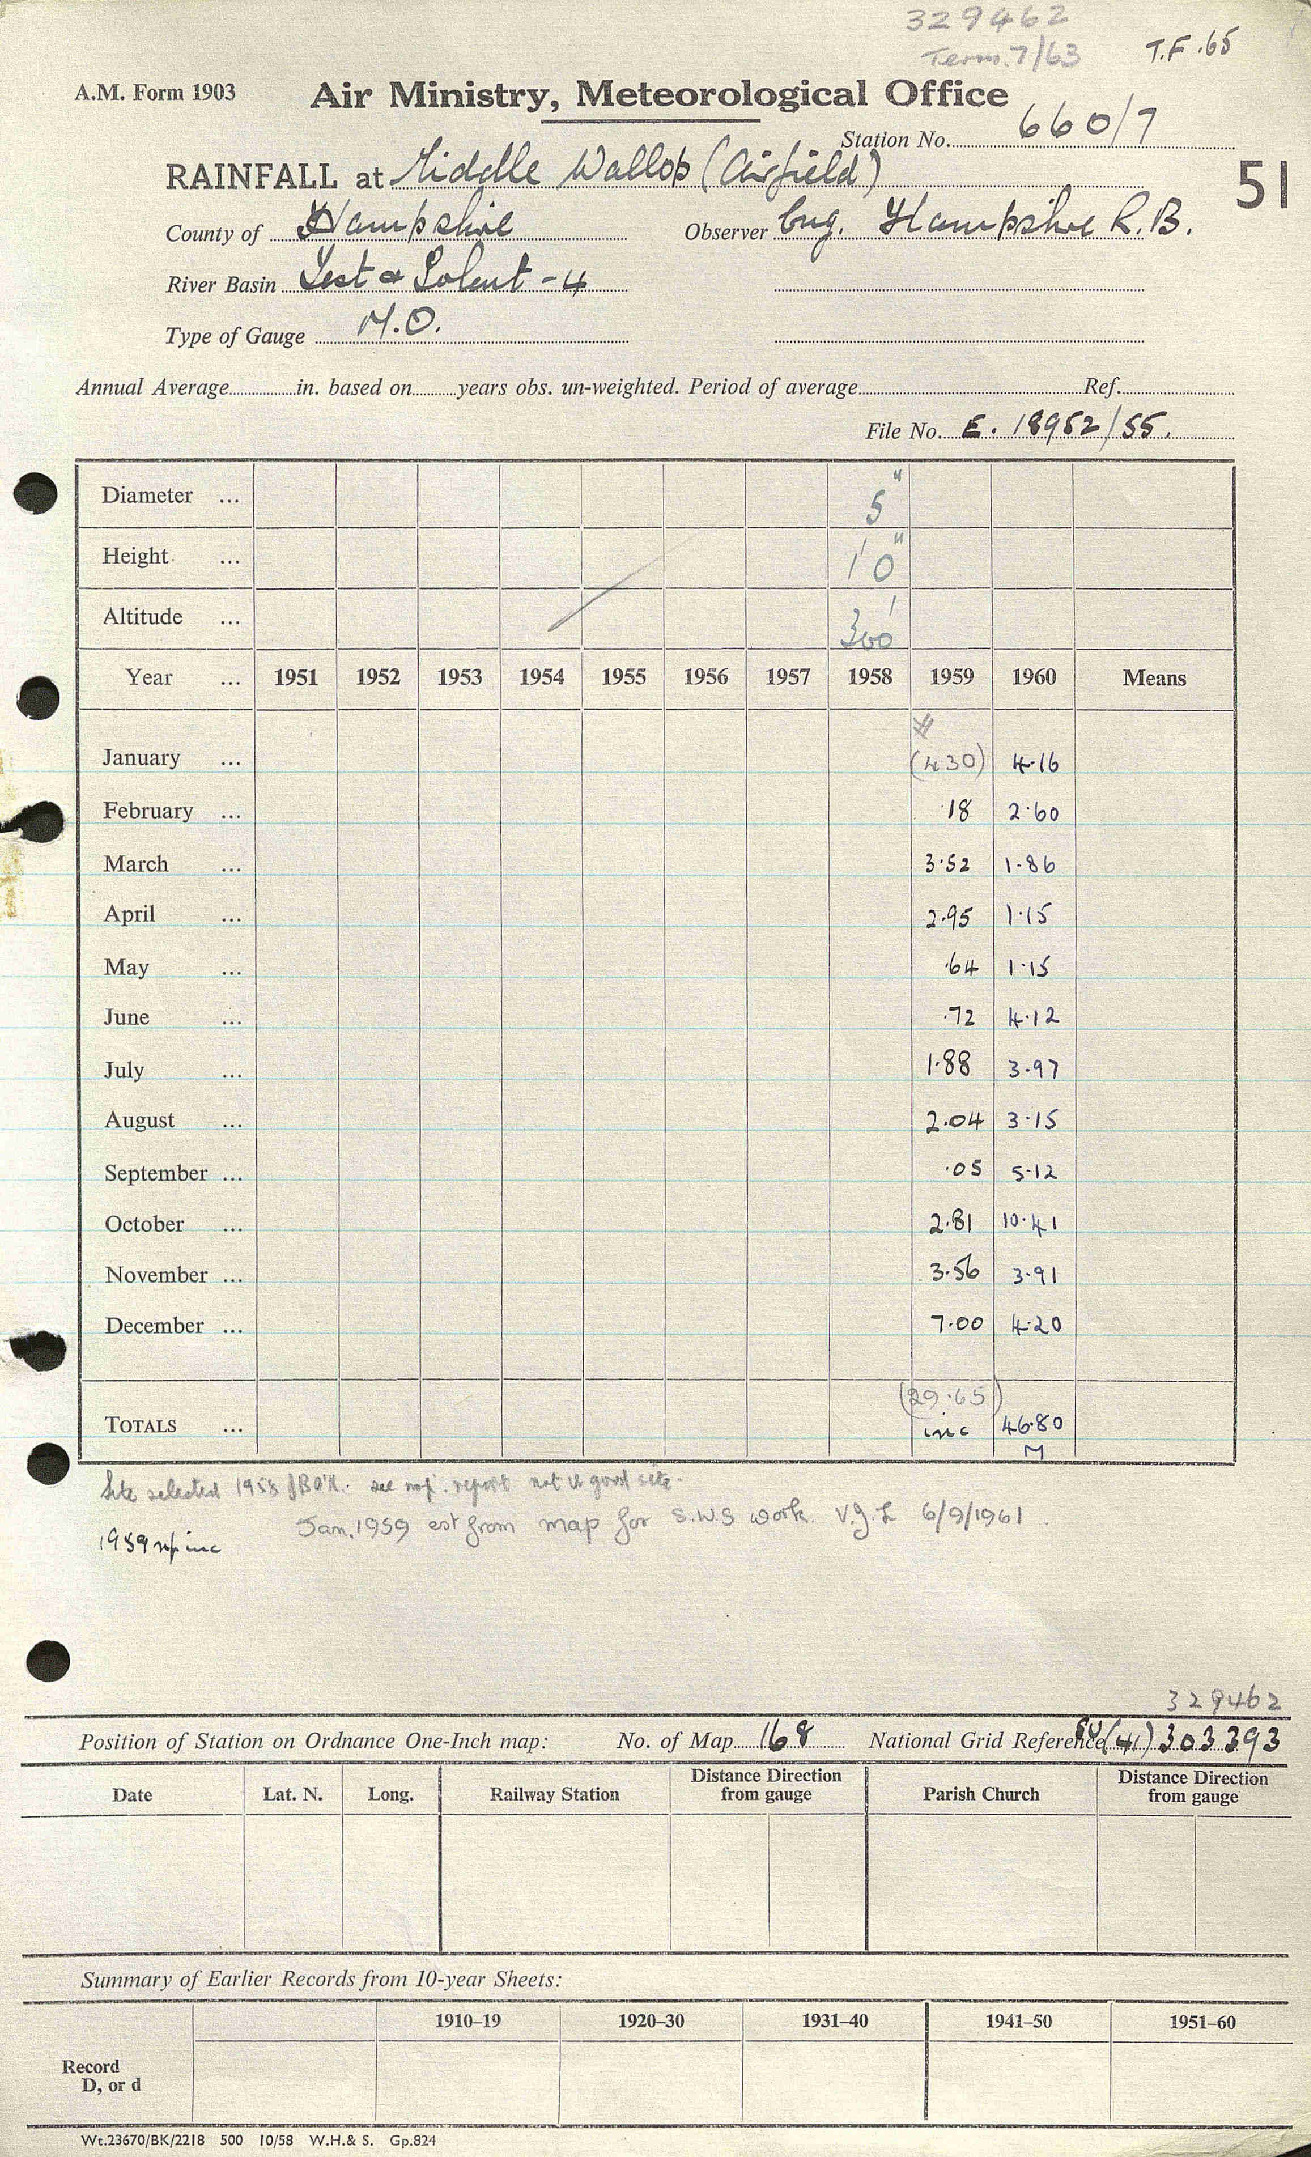 329462
Term. 7/63
T.F. 65
A.M. Form 1903
Air Ministry, Meteorological Office
Station No. 660/7
RAINFALL at Middle Wallop (Airfield)
51
County of Hampshire Observer Eng. Hampshire R.B.
River Basin Test & Solent - 4
Type of Gauge M.O.
Annual Average in. based on years obs. un-weighted. Period of average Ref.
File No. E. 18952/55.
Diameter ... 5"
Height ... 1' 0"
Altitude ... 300'
Year ... 1951 1952 1953 1954 1955 1956 1957 1958 1959 1960 Means
January ... (4 30) 4.16
February ... .18 2.60
March ... 3.52 1.86
April ... 2.95 1.15
May ... .64 1.15
June ... .72 4.12
July ... 1.88 3.97
August ... 2.04 3.15
September ... .05 5.12
October ... 2.81 10.41
November ... 3.56 3.91
December ... 7.00 4.20
(29.65)
TOTALS ... inc 46.80
M
Site selected 1958 see report not a good site.
Jan. 1959 est from map for S.W.S work. V.J.L 6/9/1961.
1959 inc
329462
Position of Station on Ordnance One-Inch map: No. of Map 168 National Grid Reference SU(41) 303393
Date Lat. N. Long. Railway Station Distance Direction from gauge Parish Church Distance Direction from gauge
Summary of Earlier Records from 10-year Sheets:
1910–19 1920–30 1931–40 1941–50 1951–60
Record
D, or d
Wt.23670/BK/2218 500 10/58 W.H.& S. Gp.824